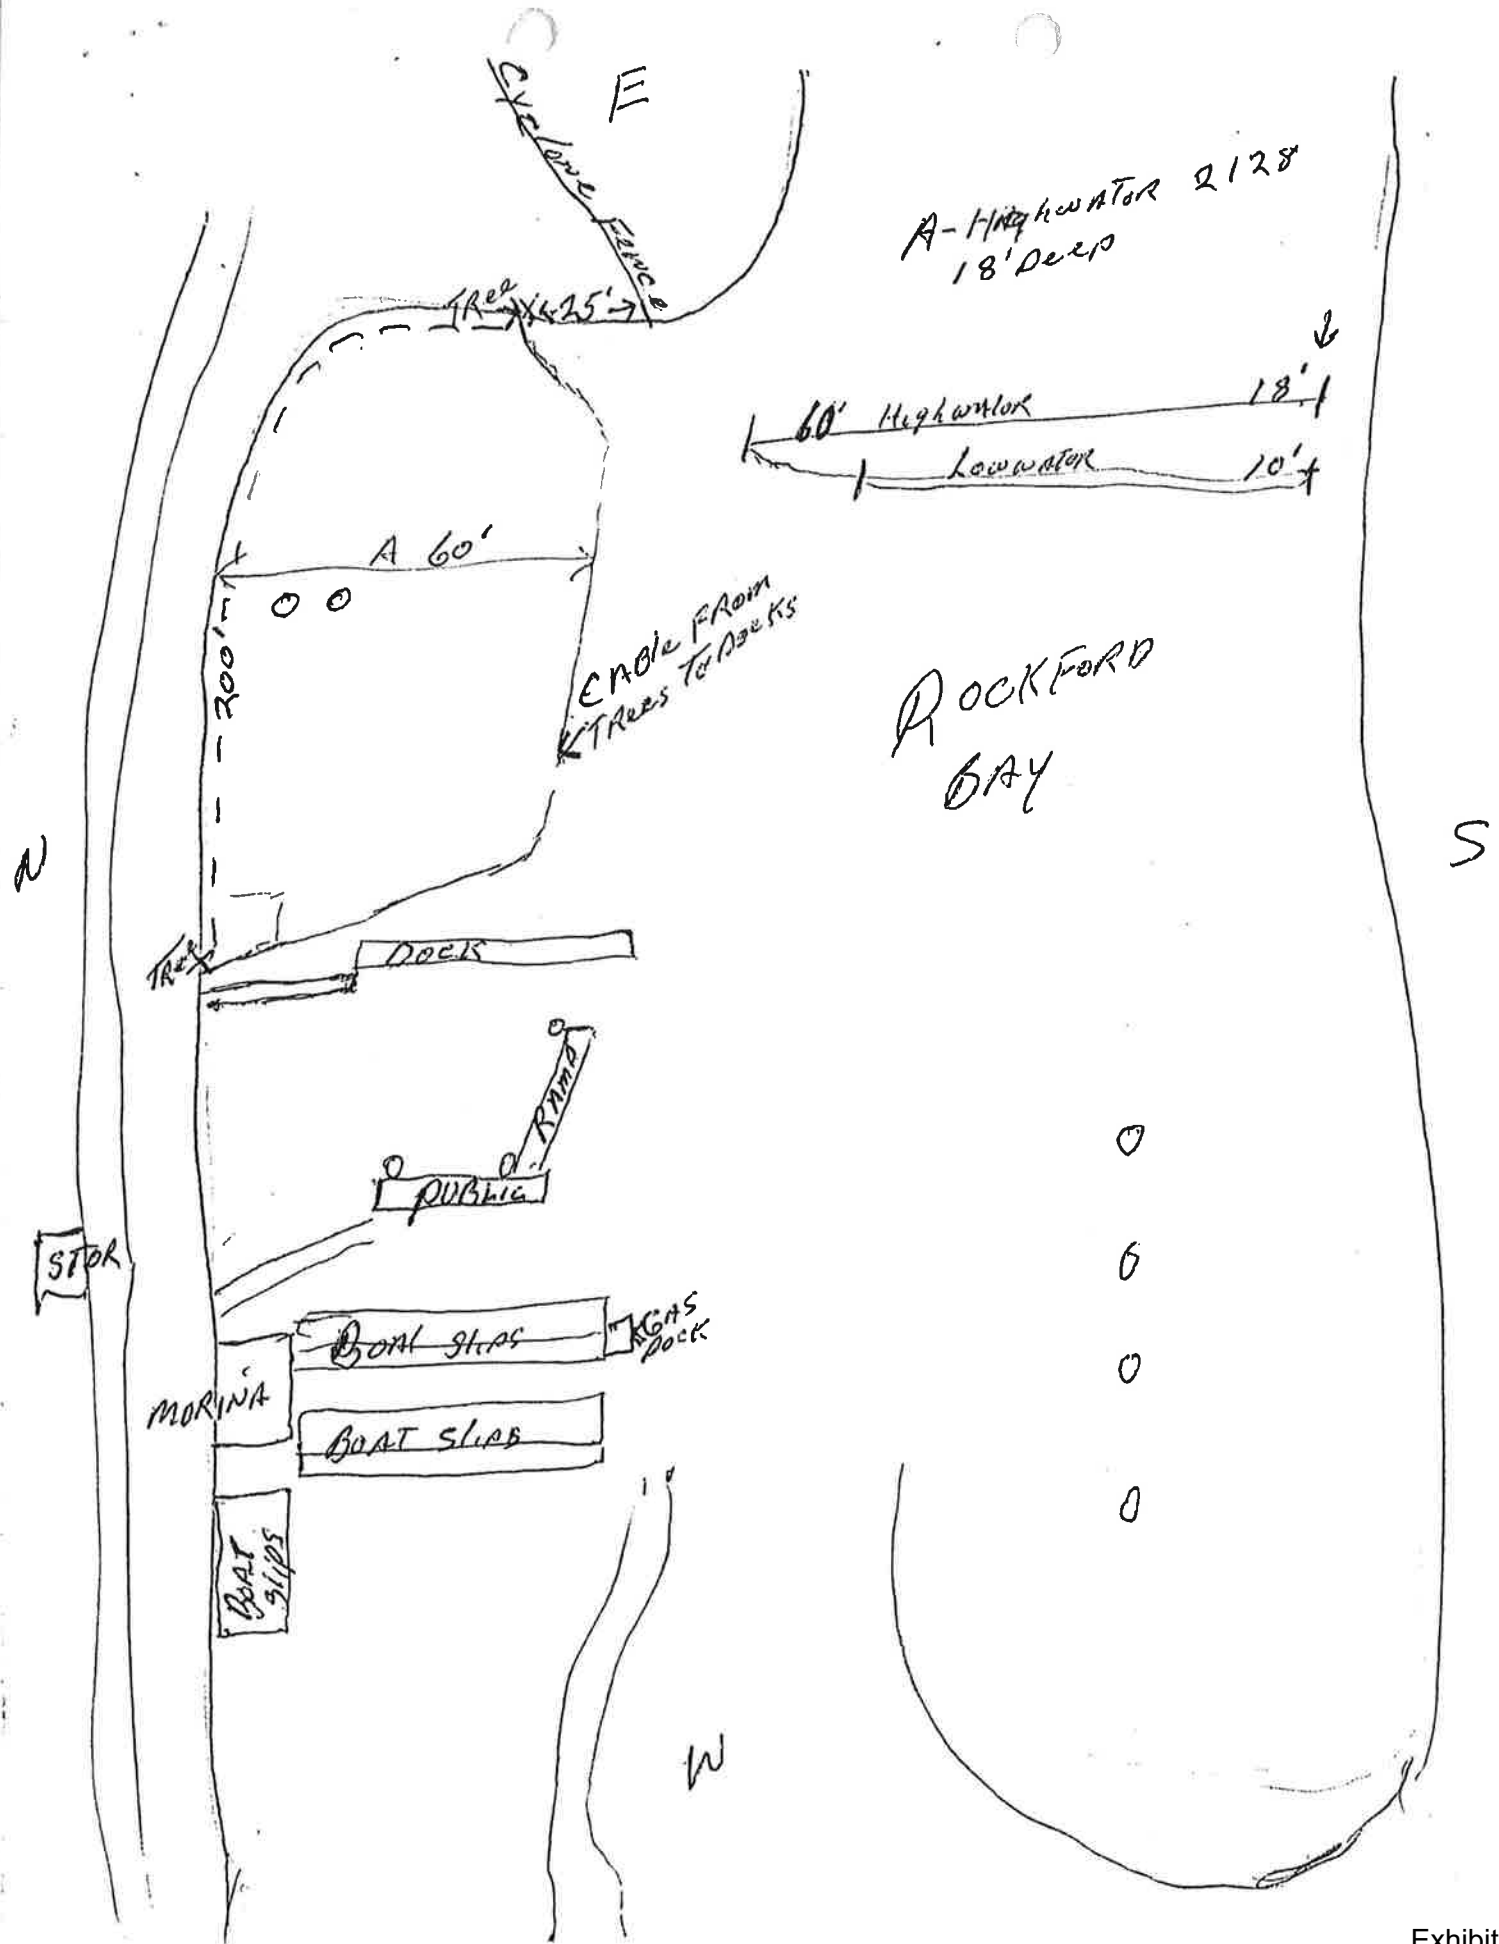 E
Cyclone Fence
A-Highwator 2128
18' Deep
TRee
25'
60' Highwator 18'
Lowwator 10'
A 60'
200'
CABle FROM
TRees To Docks
ROCKFORD
BAY
N
S
TRee
DOCK
RAMP
PUBLIC
STOR
BOAT SLIPS
GAS
DOCK
MORINA
BOAT SLIPS
BOAT
SLIPS
W
Exhibit